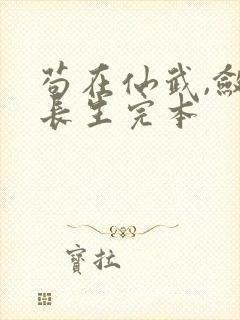 苟在仙武,敛
长生完本
寳拉